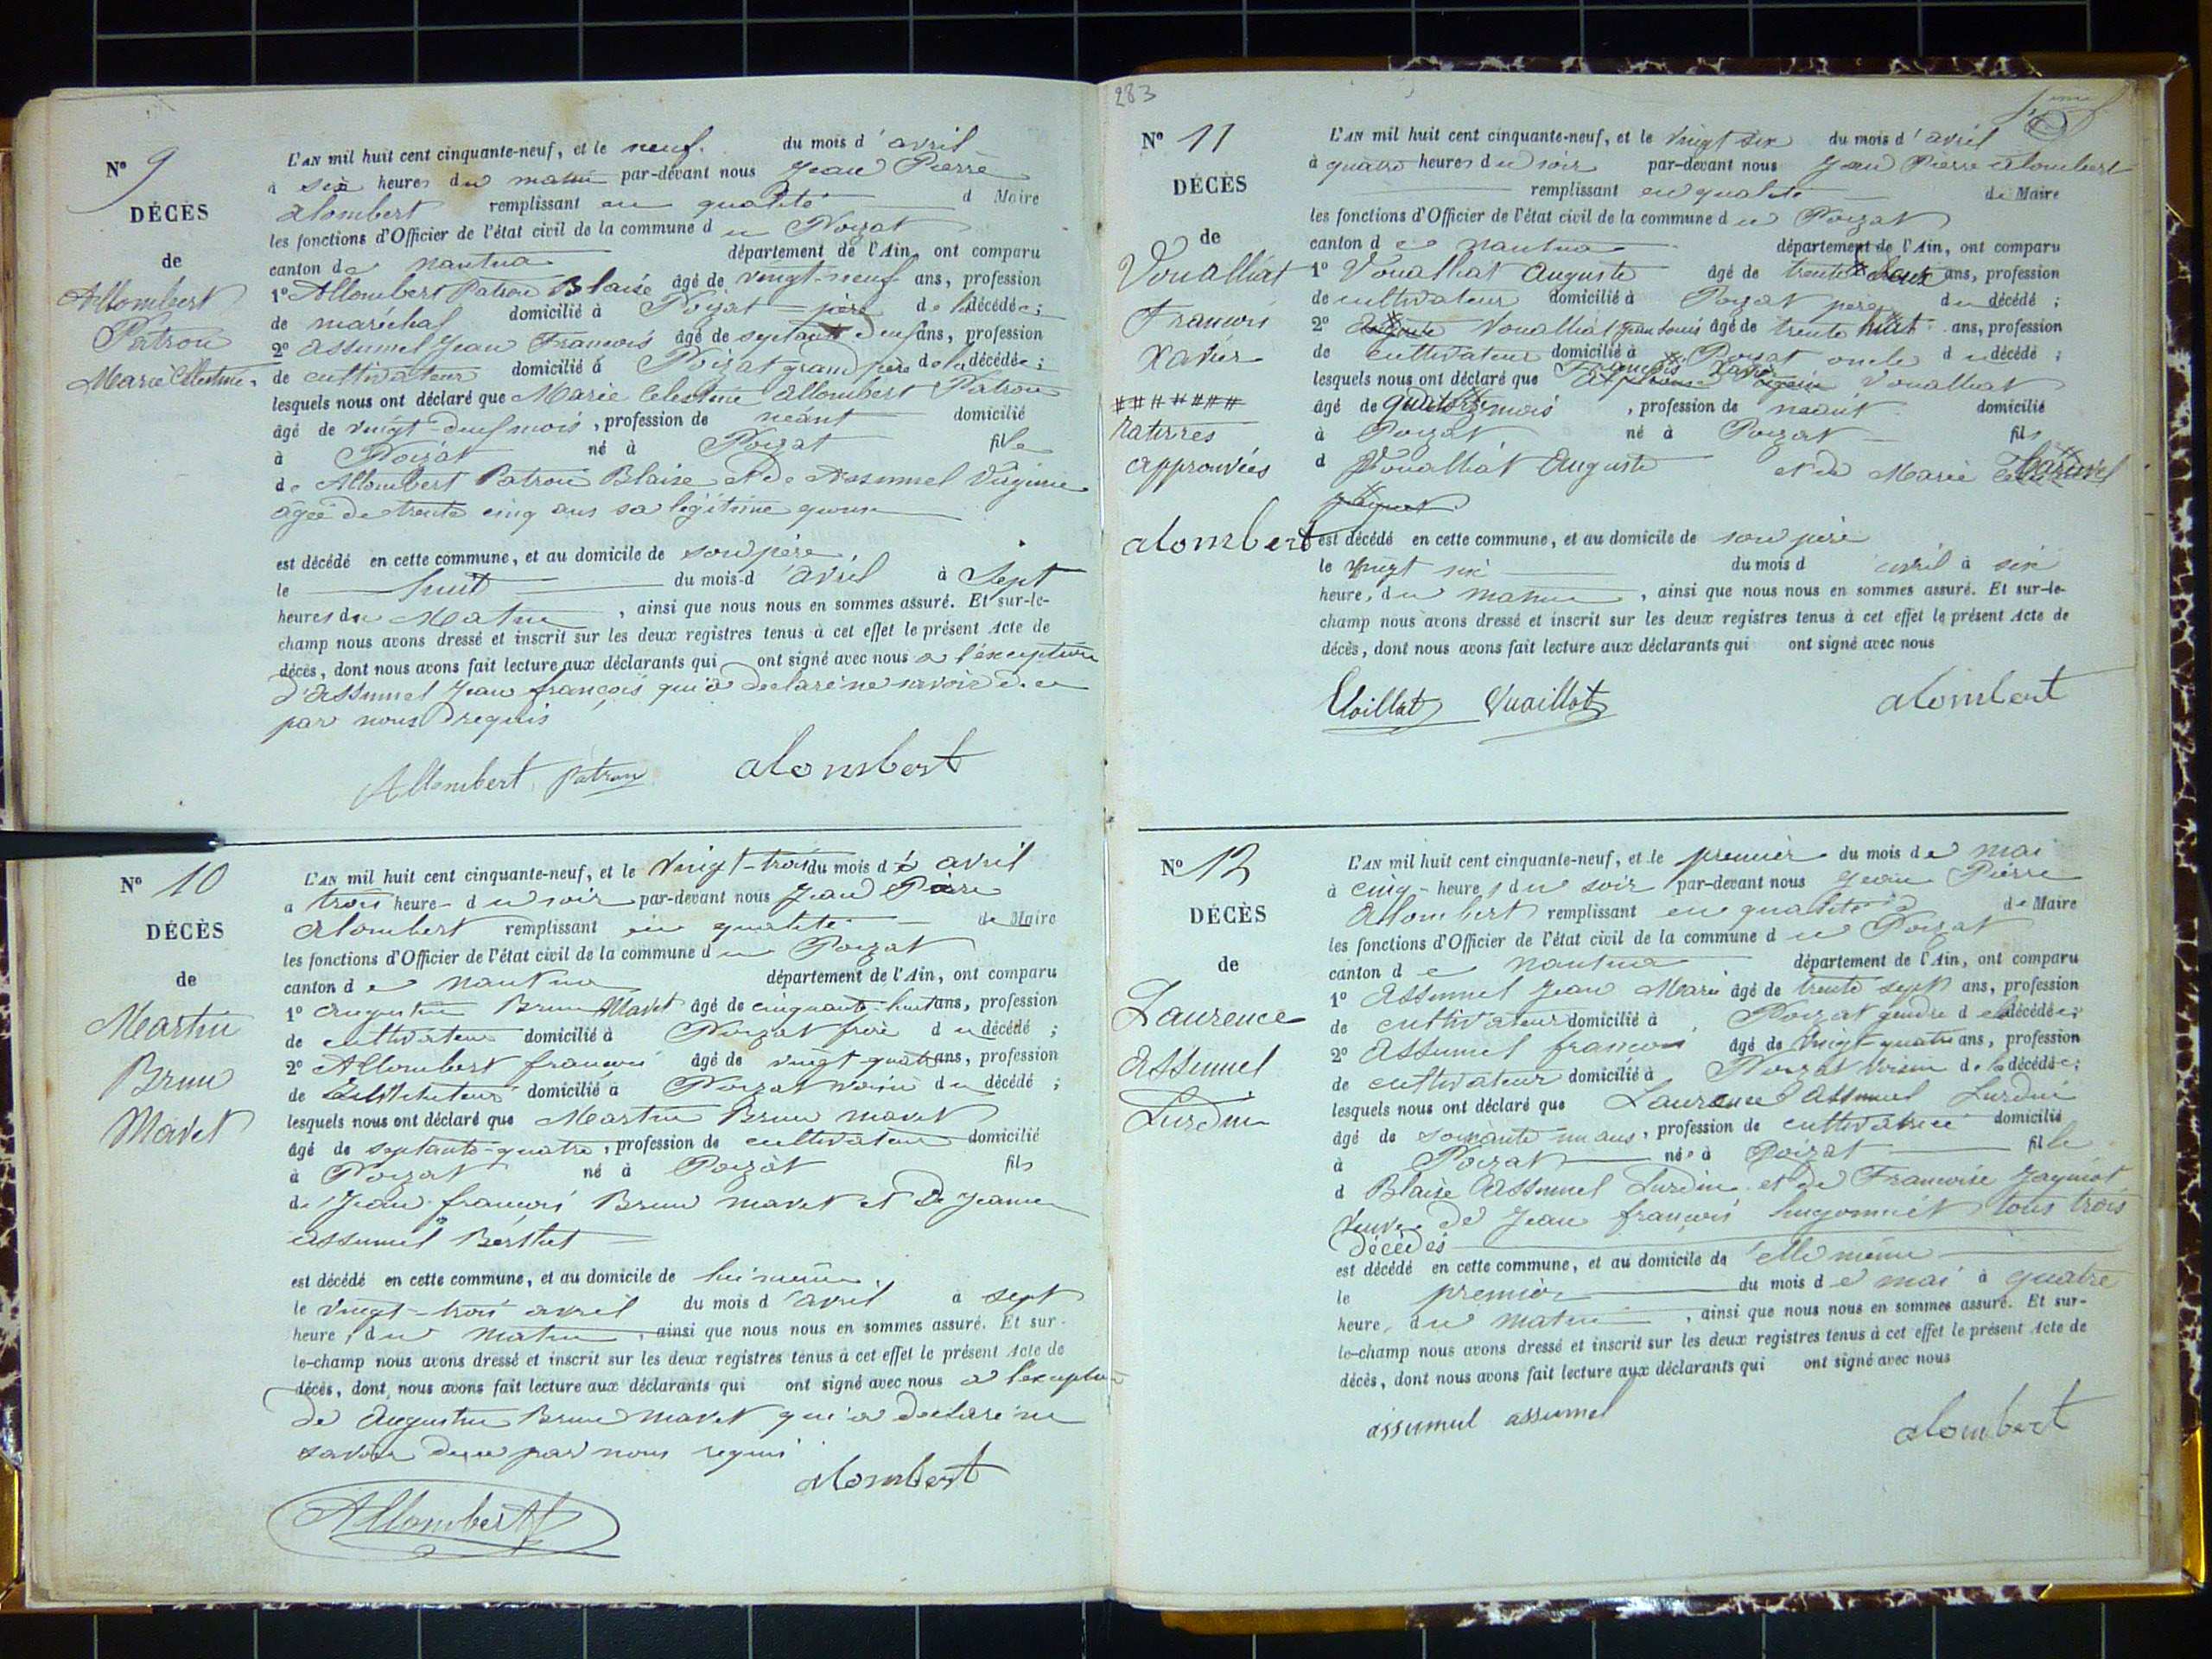 N° 9
DÉCÈS
de
Allombert
Patron
Marie Célestine
L'AN mil huit cent cinquante-neuf, et le neuf du mois d'avril
à six heures du matin par-devant nous Jean Pierre
alombert remplissant en qualité d Maire
les fonctions d'Officier de l'état civil de la commune du Poizat
canton de nantua département de l'Ain, ont comparu
1° Allombert Patron Blaise âgé de vingt-neuf ans, profession
de maréchal domicilié à Poizat père de la décédée ;
2° assumel Jean François âgé de septante deux ans, profession
de cultivateur domicilié à Poizat grand père de la décédée ;
lesquels nous ont déclaré que Marie Celestine allombert Patron
âgé de vingt-deux mois, profession de néant domicilié
à Poizat né à Poizat fille
de Allombert Patron Blaise et de Assumel Virginie
âgée de trente cinq ans sa légitime
est décédé en cette commune, et au domicile de son père
le huit du mois d'avril à Sept
heures du Matin, ainsi que nous nous en sommes assuré. Et sur-le-
champ nous avons dressé et inscrit sur les deux registres tenus à cet effet le présent Acte de
décès, dont nous avons fait lecture aux déclarants qui ont signé avec nous a l'exception
d'assumel Jean françois qui a declaré ne savoir de ce
par nous requis
Allombert Patron alombert
N° 10
DÉCÈS
de
Martin
Brun
Mavet
L'AN mil huit cent cinquante-neuf, et le Vingt-trois du mois d'avril
à trois heure du soir par-devant nous Jean Pierre
alombert remplissant en qualité de Maire
les fonctions d'Officier de l'état civil de la commune du Poizat
canton de nantua département de l'Ain, ont comparu
1° augustin Brun Mavet âgé de cinquante-huit ans, profession
de cultivateur domicilié à Poizat frère du décédé ;
2° Allombert françois âgé de vingt quatre ans, profession
de Instituteur domicilié à Poizat voisin du décédé ;
lesquels nous ont déclaré que Martin Brun mavet
âgé de septante-quatre, profession de cultivateur domicilié
à Poizat né à Poizat fils
de Jean françois Brun mavet et de Jeanne
assumel Berthet
est décédé en cette commune, et au domicile de lui même
le vingt-trois avril du mois d'avril à sept
heure, du Matin, ainsi que nous nous en sommes assuré. Et sur-
le-champ nous avons dressé et inscrit sur les deux registres tenus à cet effet le présent Acte de
décès, dont nous avons fait lecture aux déclarants qui ont signé avec nous a l'exception
de Augustin Brun Mavet qui a declaré ne
savoir de ce par nous requis
alombert
Allombert
283
N° 11
DÉCÈS
de
Vouallat
François
Xavier
#######
ratures
approuvées
alombert
L'AN mil huit cent cinquante-neuf, et le vingt six du mois d'avril
à quatre heures du soir par-devant nous Jean Pierre alombert
remplissant en qualité de Maire
les fonctions d'Officier de l'état civil de la commune du Poizat
canton de nantua département de l'Ain, ont comparu
1° Vouallat auguste âgé de trente deux ans, profession
de cultivateur domicilié à Poizat père du décédé ;
2° Vouallat Jean Louis âgé de trente huit ans, profession
de cultivateur domicilié à Poizat oncle du décédé ;
lesquels nous ont déclaré que François Xavier Vouallat
âgé de quatorze mois, profession de néant domicilié
à Poizat né à Poizat fils
d Vouallat Auguste et de Marie
est décédé en cette commune, et au domicile de son père
le vingt six du mois d avril à six
heure, du matin, ainsi que nous nous en sommes assuré. Et sur-le-
champ nous avons dressé et inscrit sur les deux registres tenus à cet effet le présent Acte de
décès, dont nous avons fait lecture aux déclarants qui ont signé avec nous
Vuaillat alombert
N° 12
DÉCÈS
de
Laurence
Assumel
Lurdin
L'AN mil huit cent cinquante-neuf, et le premier du mois de mai
à cinq heures du soir par-devant nous Jean Pierre
Alombert remplissant en qualité de Maire
les fonctions d'Officier de l'état civil de la commune du Poizat
canton de nantua département de l'Ain, ont comparu
1° Assumel Jean Marie âgé de trente sept ans, profession
de cultivateur domicilié à Poizat gendre de la décédée ;
2° Assumel françois âgé de vingt-quatre ans, profession
de cultivateur domicilié à Poizat voisin de la décédée ;
lesquels nous ont déclaré que Laurence Assumel Lurdin
âgé de soixante un ans, profession de cultivatrice domicilié
à Poizat née à Poizat fille
d Blaise Assumel Lurdin et de Françoise Jaquiot
Veuve de Jean françois hugonnet tous trois
décédés
est décédé en cette commune, et au domicile de elle même
le premier du mois de mai à quatre
heure, du matin, ainsi que nous nous en sommes assuré. Et sur-
le-champ nous avons dressé et inscrit sur les deux registres tenus à cet effet le présent Acte de
décès, dont nous avons fait lecture aux déclarants qui ont signé avec nous
assumel assumel alombert